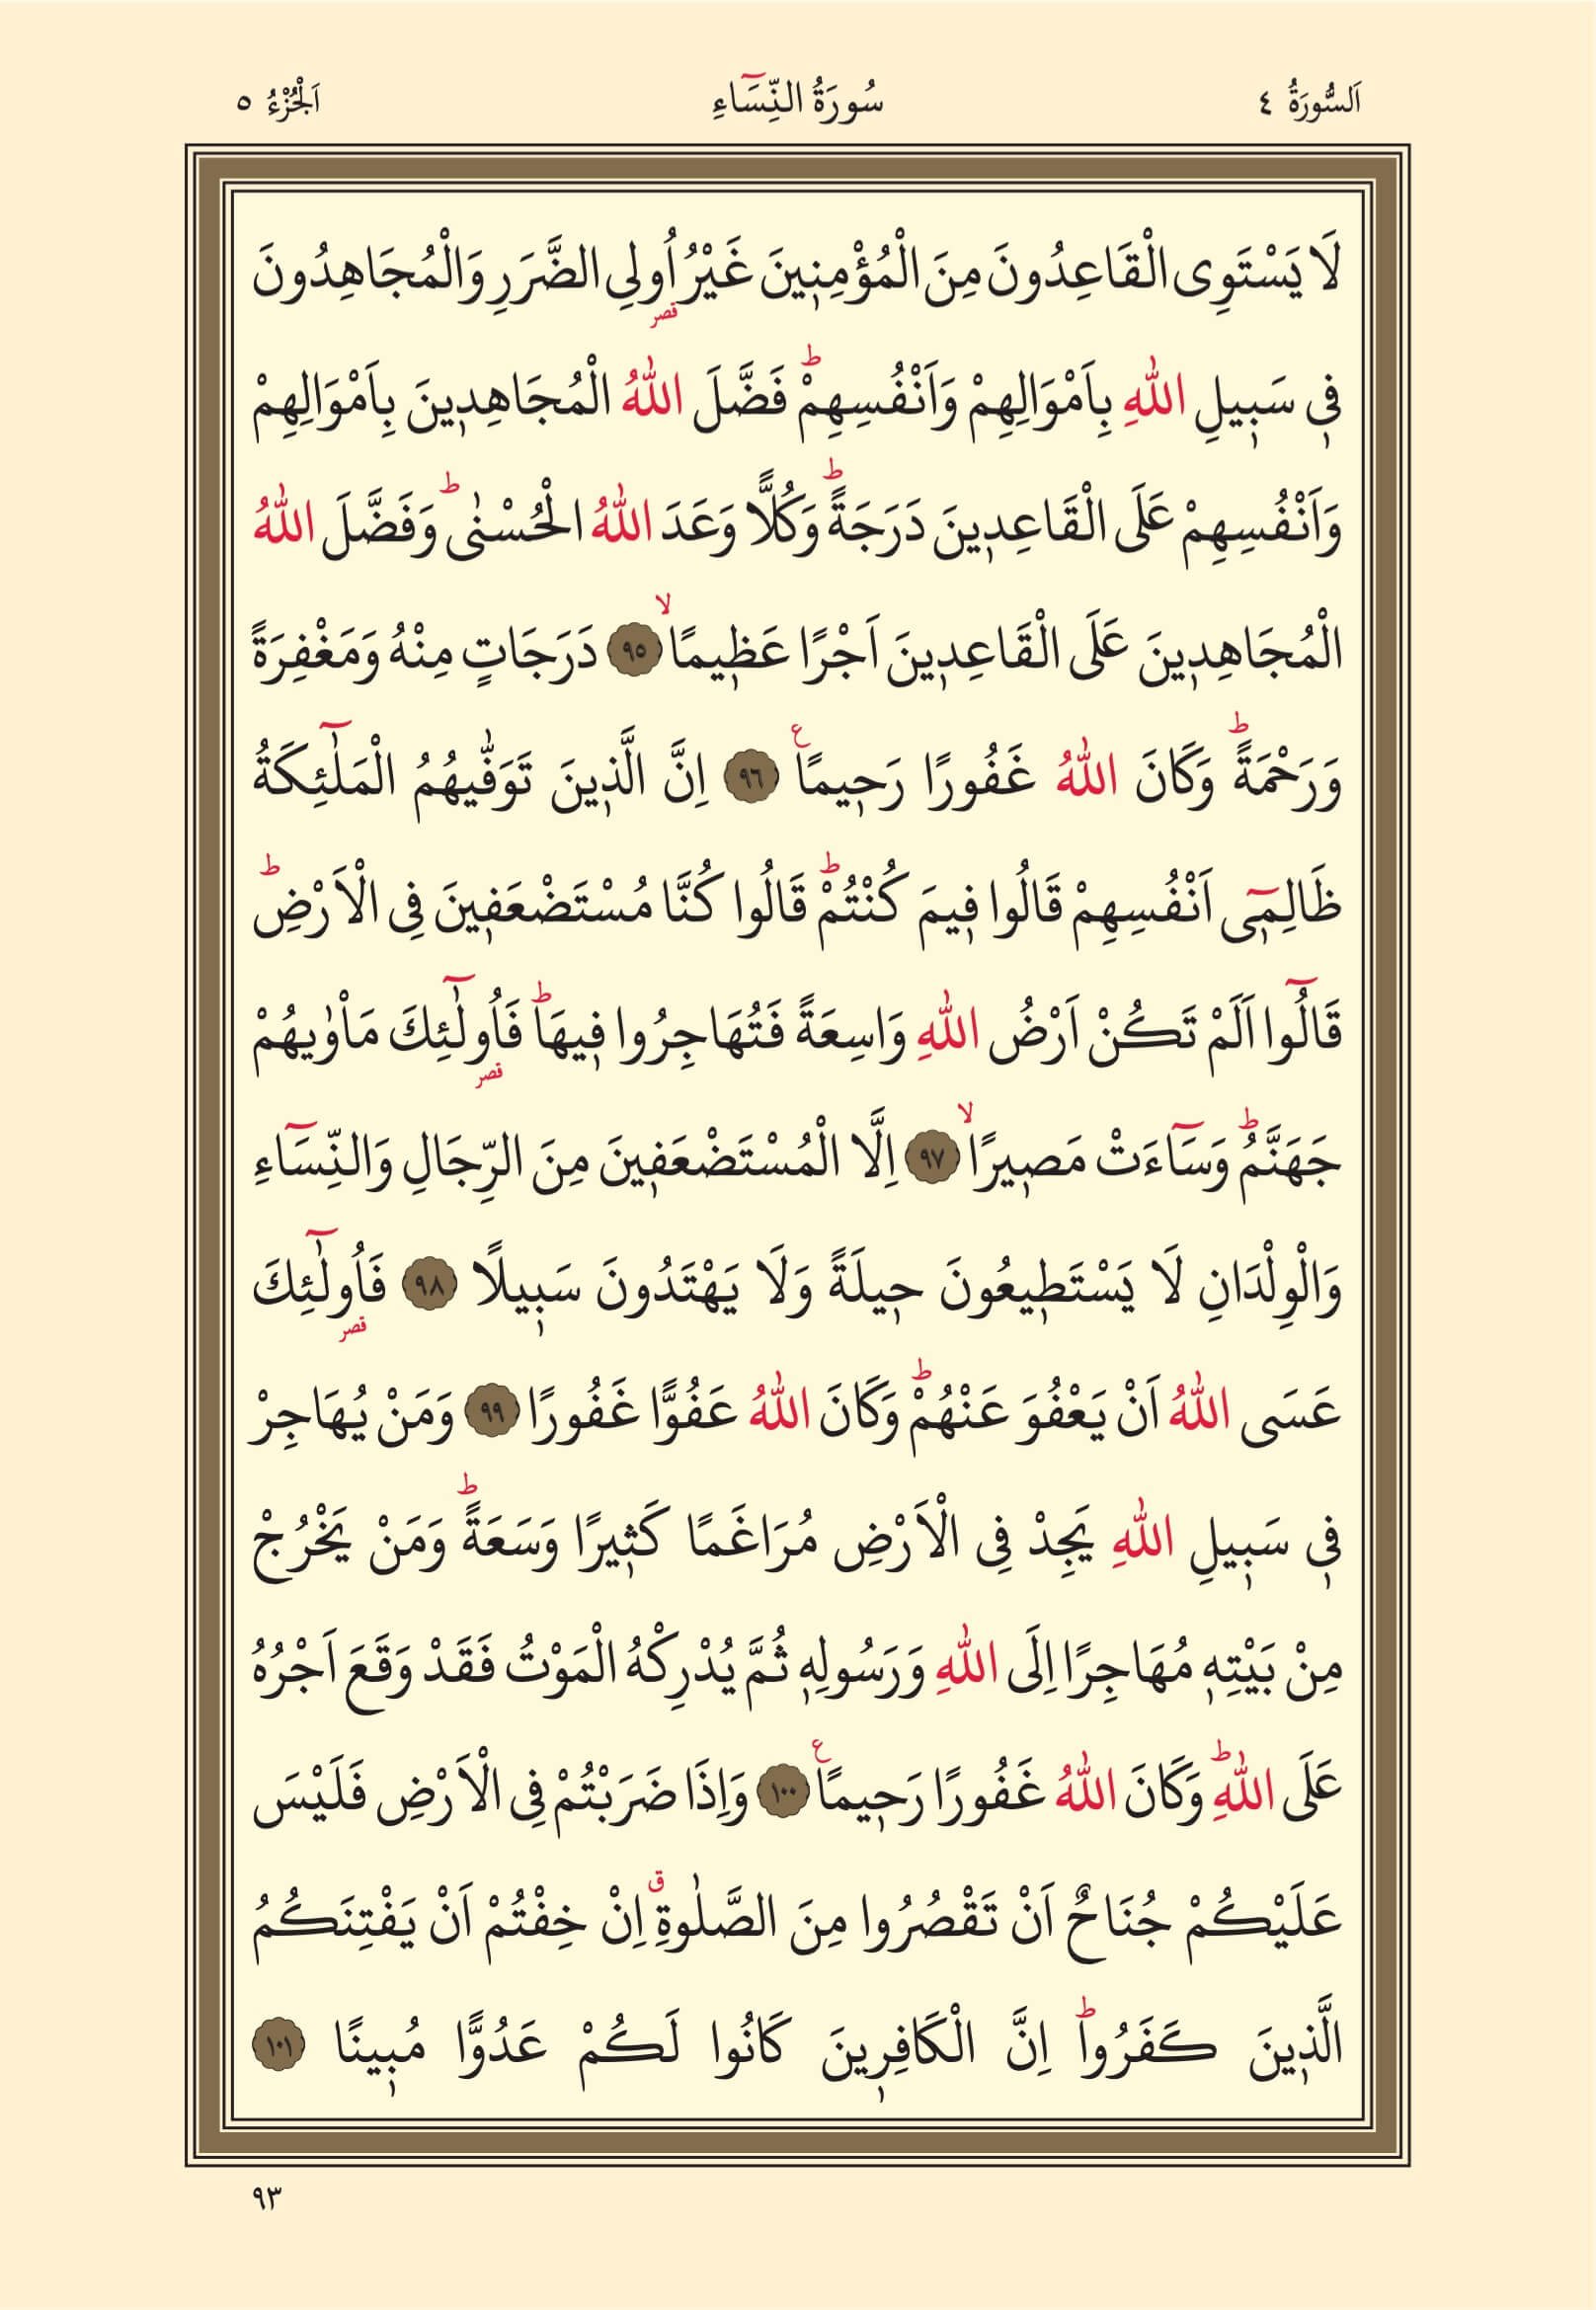 اَلسُّورَةُ ٤ سُورَةُ النِّسَٓاءِ اَلْجُزْءُ ٥
لَا يَسْتَوِى الْقَاعِدُونَ مِنَ الْمُؤْمِنٖينَ غَيْرُ اُولِى الضَّرَرِ وَالْمُجَاهِدُونَ
قصر
فٖى سَبٖيلِ اللّٰهِ بِاَمْوَالِهِمْ وَاَنْفُسِهِمْؕ فَضَّلَ اللّٰهُ الْمُجَاهِدٖينَ بِاَمْوَالِهِمْ
وَاَنْفُسِهِمْ عَلَى الْقَاعِدٖينَ دَرَجَةًؕ وَكُلًّا وَعَدَ اللّٰهُ الْحُسْنٰىؕ وَفَضَّلَ اللّٰهُ
الْمُجَاهِدٖينَ عَلَى الْقَاعِدٖينَ اَجْرًا عَظٖيمًاۙ ٩٥ دَرَجَاتٍ مِنْهُ وَمَغْفِرَةً
وَرَحْمَةًؕ وَكَانَ اللّٰهُ غَفُورًا رَحٖيمًا ع ٩٦ اِنَّ الَّذٖينَ تَوَفّٰيهُمُ الْمَلٰٓئِكَةُ
ظَالِمٖٓى اَنْفُسِهِمْ قَالُوا فٖيمَ كُنْتُمْؕ قَالُوا كُنَّا مُسْتَضْعَفٖينَ فِى الْاَرْضِؕ
قَالُٓوا اَلَمْ تَكُنْ اَرْضُ اللّٰهِ وَاسِعَةً فَتُهَاجِرُوا فٖيهَاؕ فَاُولٰٓئِكَ مَاْوٰيهُمْ
قصر
جَهَنَّمُؕ وَسَٓاءَتْ مَصٖيرًاۙ ٩٧ اِلَّا الْمُسْتَضْعَفٖينَ مِنَ الرِّجَالِ وَالنِّسَٓاءِ
وَالْوِلْدَانِ لَا يَسْتَطٖيعُونَ حٖيلَةً وَلَا يَهْتَدُونَ سَبٖيلًا ٩٨ فَاُولٰٓئِكَ
قصر
عَسَى اللّٰهُ اَنْ يَعْفُوَ عَنْهُمْؕ وَكَانَ اللّٰهُ عَفُوًّا غَفُورًا ٩٩ وَمَنْ يُهَاجِرْ
فٖى سَبٖيلِ اللّٰهِ يَجِدْ فِى الْاَرْضِ مُرَاغَمًا كَثٖيرًا وَسَعَةًؕ وَمَنْ يَخْرُجْ
مِنْ بَيْتِهٖ مُهَاجِرًا اِلَى اللّٰهِ وَرَسُولِهٖ ثُمَّ يُدْرِكْهُ الْمَوْتُ فَقَدْ وَقَعَ اَجْرُهُ
عَلَى اللّٰهِؕ وَكَانَ اللّٰهُ غَفُورًا رَحٖيمًا ع ١٠٠ وَاِذَا ضَرَبْتُمْ فِى الْاَرْضِ فَلَيْسَ
عَلَيْكُمْ جُنَاحٌ اَنْ تَقْصُرُوا مِنَ الصَّلٰوةِ ق اِنْ خِفْتُمْ اَنْ يَفْتِنَكُمُ
الَّذٖينَ كَفَرُواؕ اِنَّ الْكَافِرٖينَ كَانُوا لَكُمْ عَدُوًّا مُبٖينًا ١٠١
٩٣